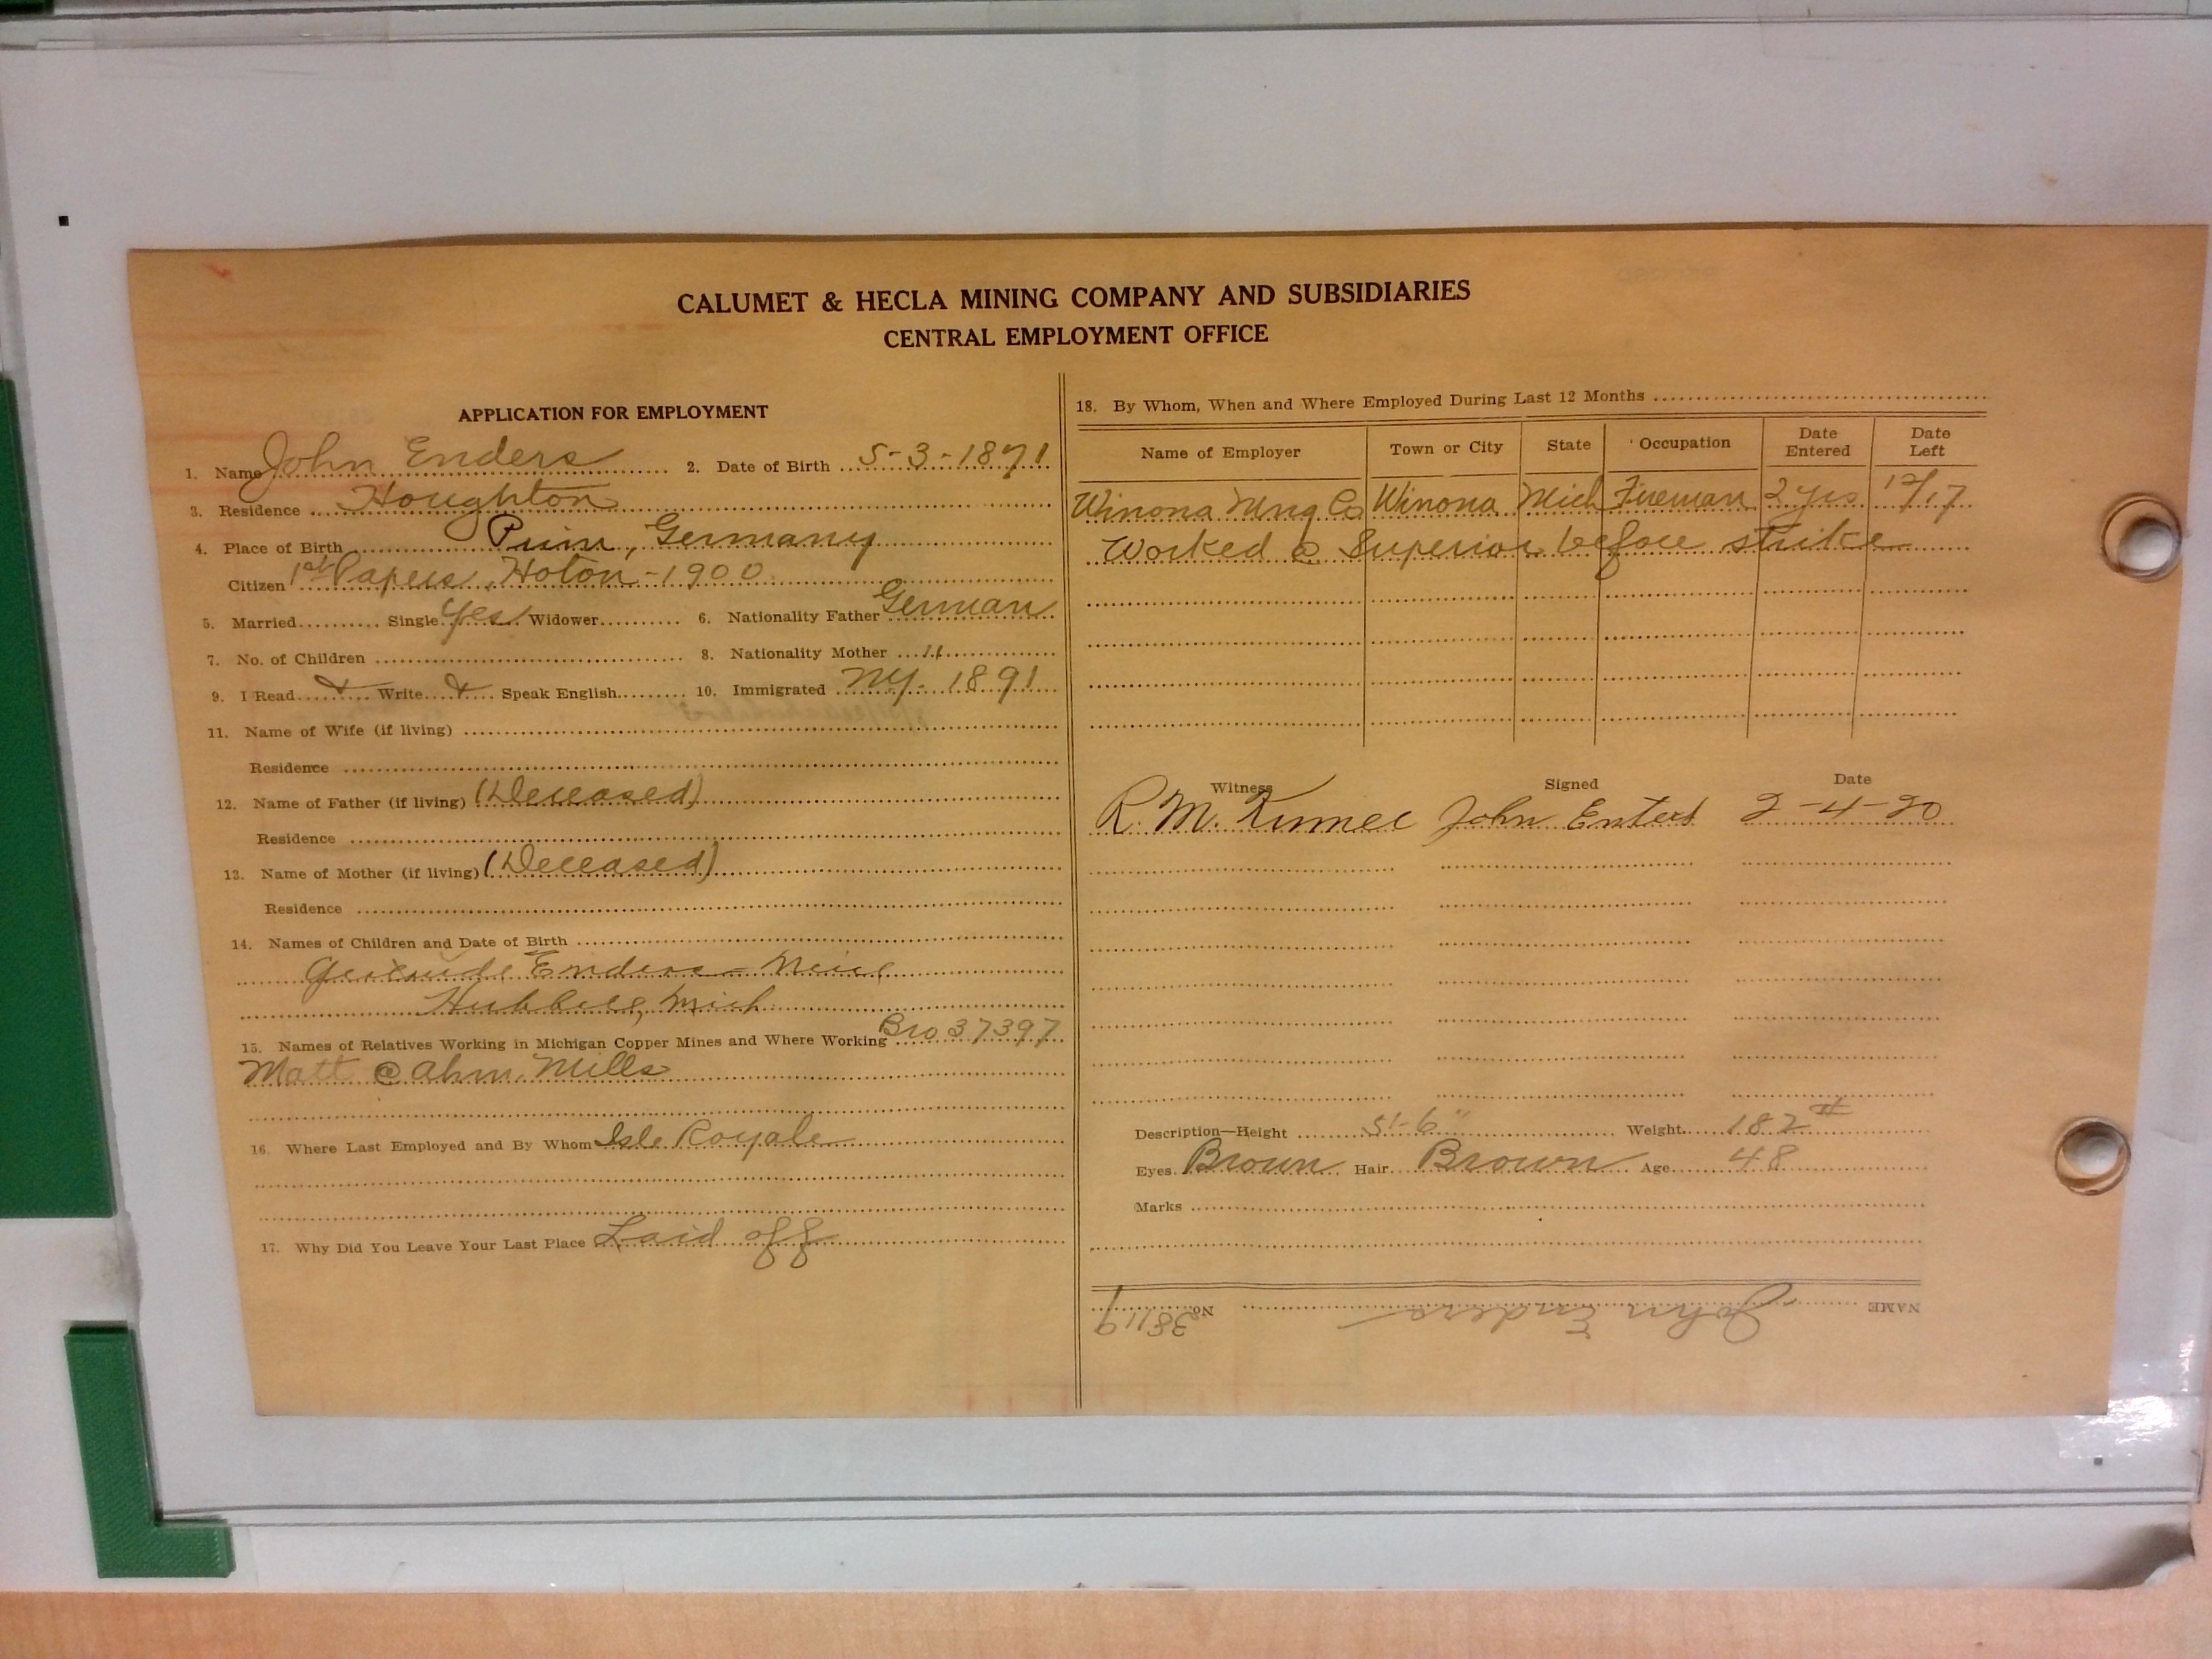 CALUMET & HECLA MINING COMPANY AND SUBSIDIARIES
CENTRAL EMPLOYMENT OFFICE
APPLICATION FOR EMPLOYMENT
1. Name John Enders 2. Date of Birth 5-3-1871
3. Residence Houghton
4. Place of Birth , Germany
Citizen 1st Papers, Hoton-1900
5. Married Single yes Widower 6. Nationality Father German
7. No. of Children 8. Nationality Mother "
9. I Read Write Speak English 10. Immigrated NY. 1891
11. Name of Wife (if living)
Residence
12. Name of Father (if living) (Deceased)
Residence
13. Name of Mother (if living) (Deceased)
Residence
14. Names of Children and Date of Birth
Gertrude Enders - Neice
Hubbell, Mich
15. Names of Relatives Working in Michigan Copper Mines and Where Working Bro 37397
Matt @ Ahm. Mills
16. Where Last Employed and By Whom Isle Royale
17. Why Did You Leave Your Last Place Laid off
18. By Whom, When and Where Employed During Last 12 Months
Name of Employer Town or City State Occupation Date Entered Date Left
Winona Mng Co Winona Mich Fireman 2 yrs. 12/17
Worked @ Superior before strike
Witness Signed Date
R. M. John Enters 2-4-20
Description—Height 5'-6" Weight 182#
Eyes Brown Hair Brown Age 48
Marks
NAME John Enders No. 38119